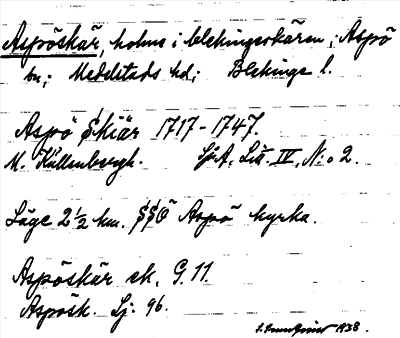 Aspöskär, holme i blekingeskären; Aspö
sn; Medelstads hd; Blekinge l.
Aspö Skiär 1717-1747.
M. Küllenbergh. SjA, Litt. IV, N:o 2.
Läge 2 1/2 km. SSÖ Aspö kyrka.
Aspöskär ek. G. 11.
Aspösk. Sj. 96.
1938.